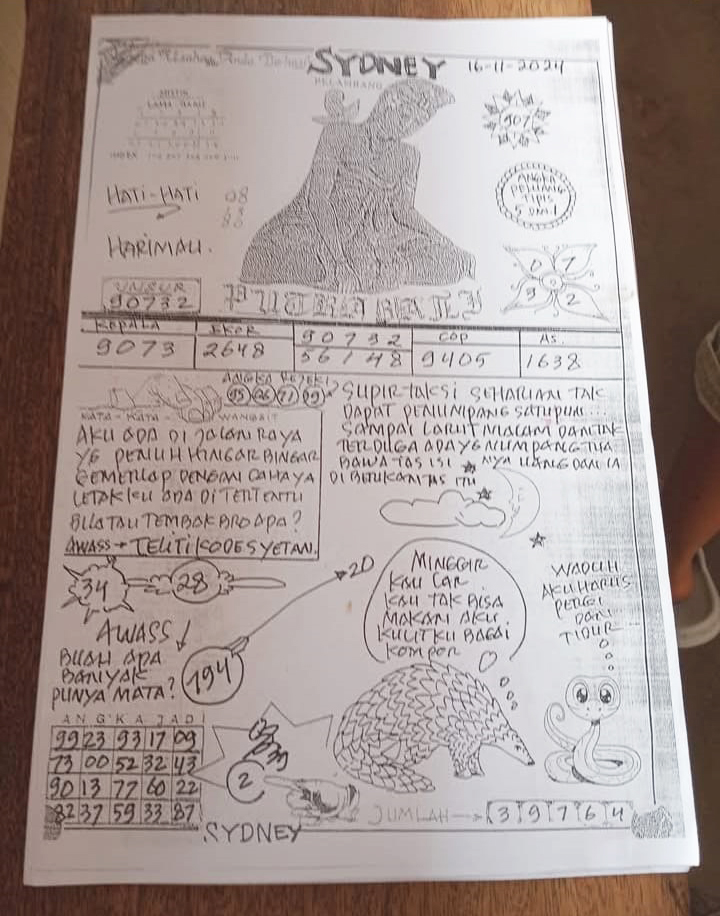 SYDNEY 16-11-2024
PELAMBANG
907
HATI-HATI 08
80
HARIMAU.
ANGKA
PELUANG
TIPIS
5 DM!
UNSUR
90732
PUTRA BALI
0 7
9 2
KEPALA EKOR 90732 COP AS.
9073 2648 56148 9405 1638
ANGKA REJEKI
KATA-KATA WANGSIT
AKU ADA DI JALAN RAYA
YG PENUH HINGAR BINGAR
GEMERLAP DENGAN CAHAYA
LETAK KU ADA DI TERTENTU
BILA TAU TEMBAK BRO APA?
AWASS → TELITI KODE SYETAN.
SUPIR TAKSI SEHARIAN TAK
DAPAT PENUMPANG SATUPUN...
SAMPAI LARUT MALAM DAN TAK
TERDUGA ADA YG NUMPANG TUA
BAWA TAS ISI NYA UANG DAN IA
DI BERIKAN TAS ITU
34 28 20
AWASS!
BUAH APA
BANYAK
PUNYA MATA?
194
MINGGIR
KAU LAR
KAU TAK BISA
MAKAN AKU
KULITKU BAGAI
KOMPOR
WADUH
AKU HARUS
PERGI
DARI
TIDUR
ANGKA JADI
99 23 93 17 09
73 00 52 32 43
90 13 77 60 22
82 37 59 33 87
2
JUMLAH → 3 9 7 6 4
SYDNEY